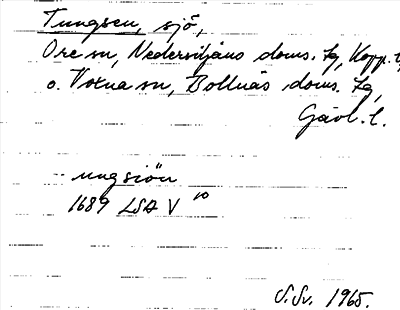 Tungsen, sjö,
Ore sn, Nedersiljans doms. tg, Kopp. l,
o. Voxna sn, Bollnäs doms. tg,
Gävl. l.
-- ungsiön
1689 LSA V 10
S.Sv. 1965.